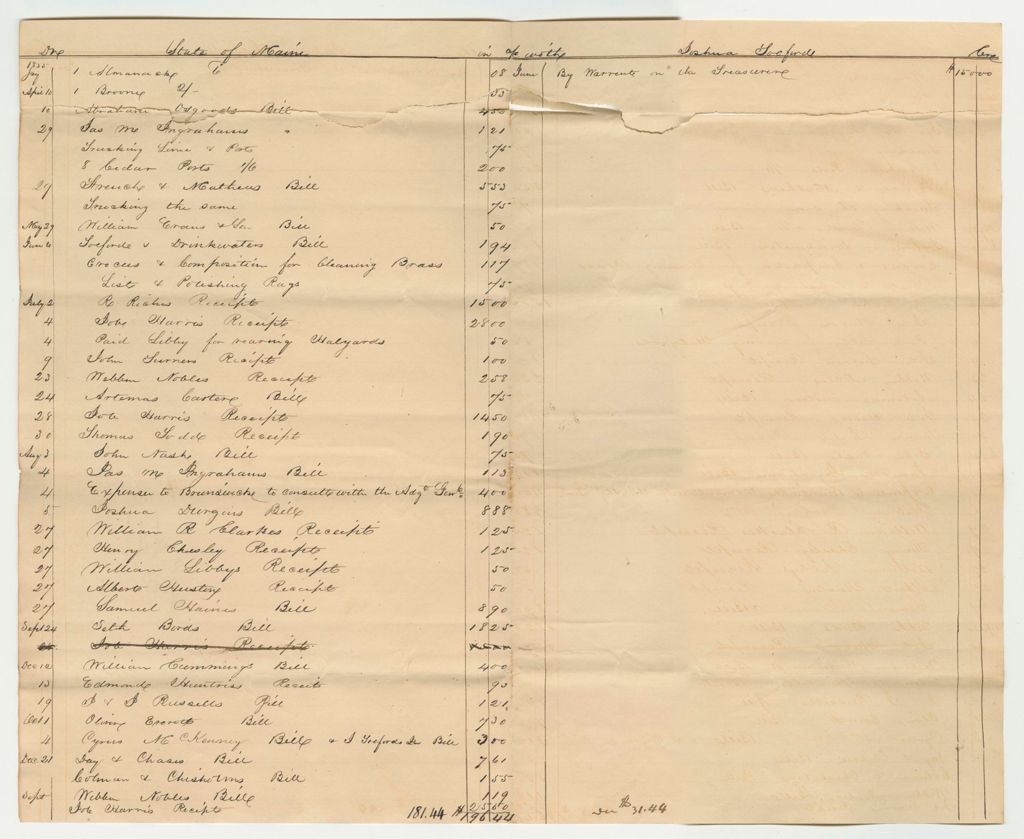 Dr State of Maine in a/c with Joshua Cr
1 Almanack 08 June By Warrants on the Treasurer $150 00
April 10 1 Broom 2/- 33
10 Abraham Osgoods Bill 450
29 Jas M Ingrahams " 121
Trucking Lime & Posts 75
8 Cedar Posts 1/6 200
27 French & Mathews Bill 553
Trucking the same 75
May 29 William Evans & Son Bill 50
June 6 & Drinkwaters Bill 194
Crocus & Composition for Cleaning Brass 117
List & Polishing Rags 75
July 2 R Richs Receipt 1500
4 Job Harris Receipt 2800
4 Paid Libby for Halyards 50
9 John Turners Receipt 100
23 Webber Nobles Receipt 258
24 Artemas Carters Bill 75
28 Job Harris Receipt 1450
30 Thomas Todd Receipt 190
Aug 3 John Nash Bill 75
4 Jas M Ingrahams Bill 113
4 Expenses to Brunswick to consult with the Adjt Genl 400
5 Joshua Durgins Bill 888
27 William R Clarkes Receipt 125
27 Henry Chesley Receipt 125
27 William Libbys Receipt 50
27 Alberts Receipt 50
27 Samuel Haines Bill 890
Sept 24 Seth Bords Bill 1825
Job Harris Receipt
Dec 12 William Cummings Bill 400
13 Edmond Receipt 93
19 J & J Russells Bill 121
Oct 11 Oliver Everett Bill 730
4 Cyrus McKenney Bill & J Bill 300
Dec 21 Day & Chases Bill 761
Colman & Chisholms Bill 155
Sept Webber Nobles Bill 119
Job Harris Receipt 2500
181.44 $ 196 44 Due $ 31.44